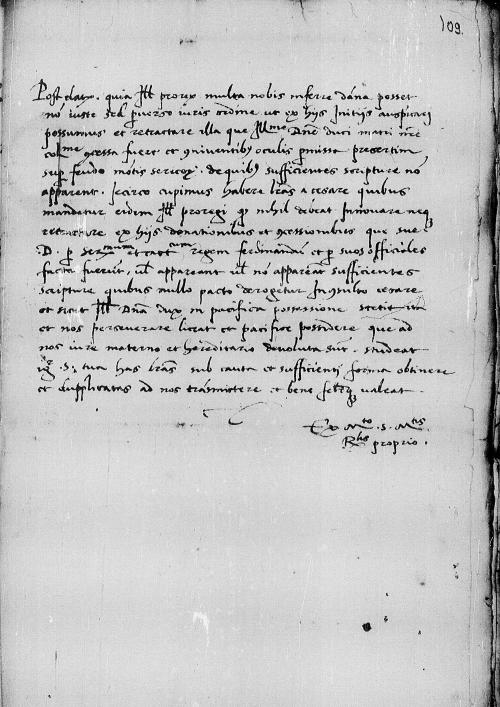 109.
Post datux. quia Ill prorex multa nobis inferre dāna posset
nō iuste sed pverso iuris ordine ut ex hijs Initijs auspicari
possumus et retractare illa que Illme Dne duci matri nre
colme ꝯcessa fuerūt et ꝯniventibꝰ oculis pmissa presertim
sup feudo mōtis sericoꝝ. de quibꝰ sufficientes scripture nō
apparent. Iccirco cupimus habere lras a cesare quibus
mandetur eidem Ill proregi qp nihil debeat Innovare neqꝫ
retractare ex hijs donationibus et ꝯcessionibus que sue
.D. p sermum et catcum regem ferdinandū et p suos officiales
facte fuerūt, ul appareant ul nō appareāt sufficientes
scripture quibus nullo pacto derogetur Inꝯsulto cesare
et sicut Ill Dna dux in pacifica possessione stetit ita
et nos perseverare liceat et pacifice possidere que ad
nos iure materno et hereditario devoluta sūt. studeat
.S. tua has lras sub cauta et sufficienti forma obtinere
et dupplicatas ad nos trāsmittere et bene valeat.
Ex Mto .S. Mtis
Rlis proprio.